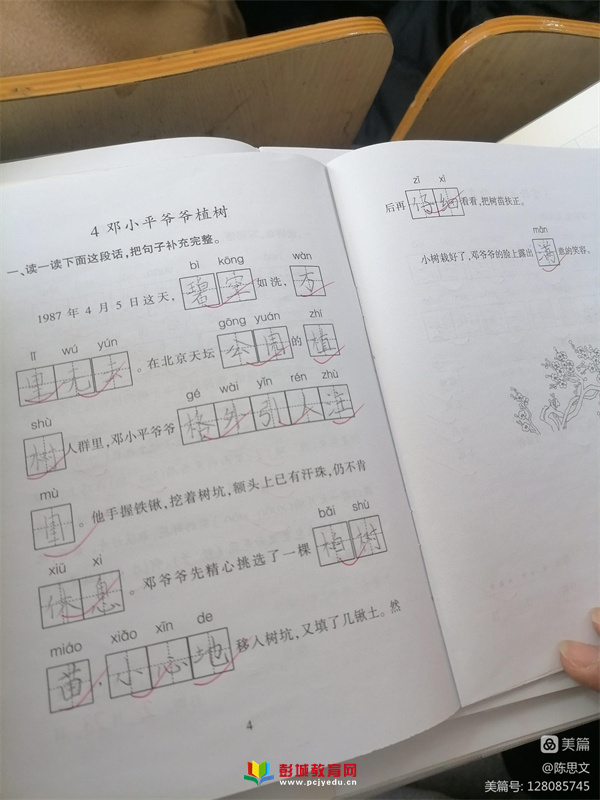 4 邓小平爷爷植树
一、读一读下面这段话,把句子补充完整。
bì kōng wàn
1987 年 4 月 5 日这天, 碧空如洗, 万
lǐ wú yún
里无云。在北京天坛
gōng yuán zhí
公园的植
shù gé wài yǐn rén zhù
树人群里,邓小平爷爷格外引人注
mù
目。他手握铁锹,挖着树坑,额头上已有汗珠,仍不肯
xiū xi
休息。邓爷爷先精心挑选了一棵
bǎi shù
柏树
miáo xiǎo xīn de
苗,小心地移入树坑,又填了几锹土。然
4
zǐ xì
后再仔细看看,把树苗扶正。
mǎn
小树栽好了,邓爷爷的脸上露出满意的笑容。
彭城教育网
www.pcjyedu.cn
美篇
@陈思文
美篇号: 128085745